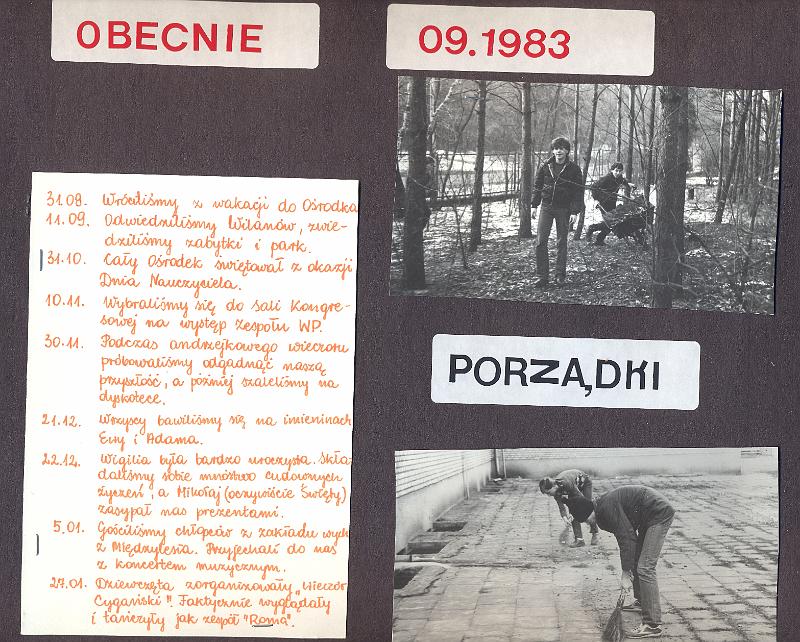 OBECNIE
09.1983
31.08. Wróciliśmy z wakacji do Ośrodka
11.09. Odwiedziliśmy Wilanów, zwie-
dziliśmy zabytki i park.
31.10. Cały Ośrodek świętował z okazji
Dnia Nauczyciela.
10.11. Wybraliśmy się do Sali Kongre-
sowej na występ Zespołu WP.
30.11. Podczas andrzejkowego wieczoru
próbowaliśmy odgadnąć naszą
przyszłość, a później szaleliśmy na
dyskotece.
21.12. Wszyscy bawiliśmy się na imieninach
Ewy i Adama.
22.12. Wigilia była bardzo uroczysta. Skła-
daliśmy sobie mnóstwo cudownych
życzeń, a Mikołaj (oczywiście Święty)
zasypał nas prezentami.
5.01. Gościliśmy chłopców z zakładu wych
z Międzylesia. Przyjechali do nas
z koncertem muzycznym.
27.01. Dziewczęta zorganizowały "Wieczór
Cygański". Faktycznie wyglądały
i tańczyły jak zespół "Roma".
PORZĄDKI